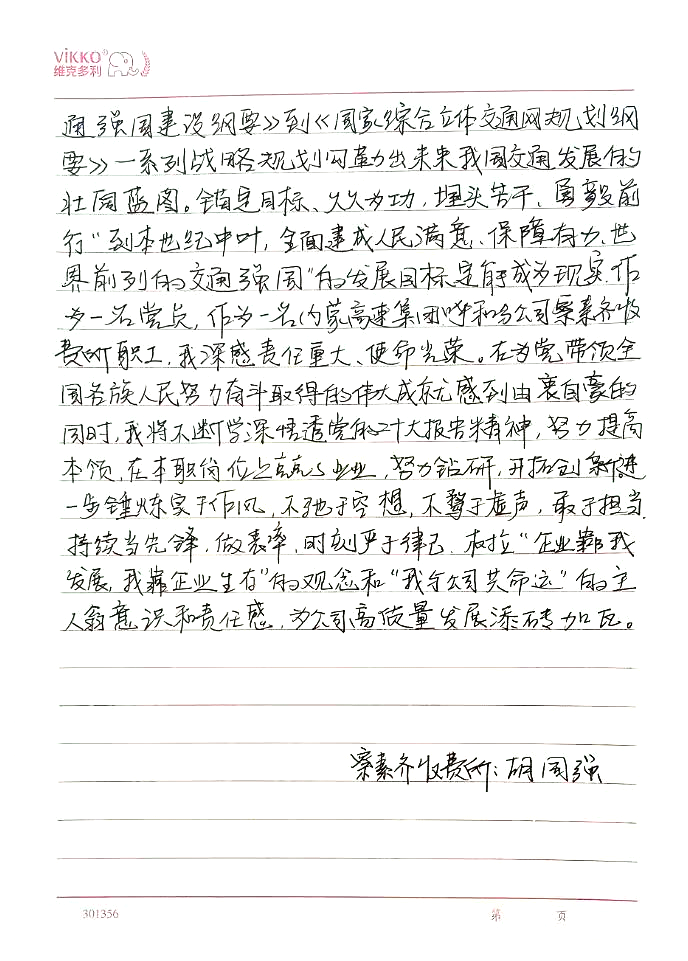 ViKKO®
维克多利
通强国建设纲要》到《国家综合立体交通网规划纲
要》一系列战略规划勾勒出未来我国交通发展的
壮阔蓝图。锚定目标、久久为功,埋头苦干、勇毅前
行“到本世纪中叶,全面建成人民满意、保障有力、世
界前列的交通强国”的发展目标定能成为现实。作
为一名党员,作为一名内蒙高速集团呼和分公司察素齐收
费所职工,我深感责任重大、使命光荣。在为党带领全
国各族人民努力奋斗取得的伟大成就感到由衷自豪的
同时,我将不断学深悟透党的二十大报告精神,努力提高
本领,在本职岗位上兢兢业业,努力钻研,开拓创新,进
一步锤炼实干作风,不驰于空想,不骛于虚声,敢于担当,
持续当先锋,做表率,时刻严于律己,树立“企业靠我
发展,我靠企业生存”的观念和“我与公司共命运”的主
人翁意识和责任感,为公司高质量发展添砖加瓦。
察素齐收费所:胡国强
301356
第 页